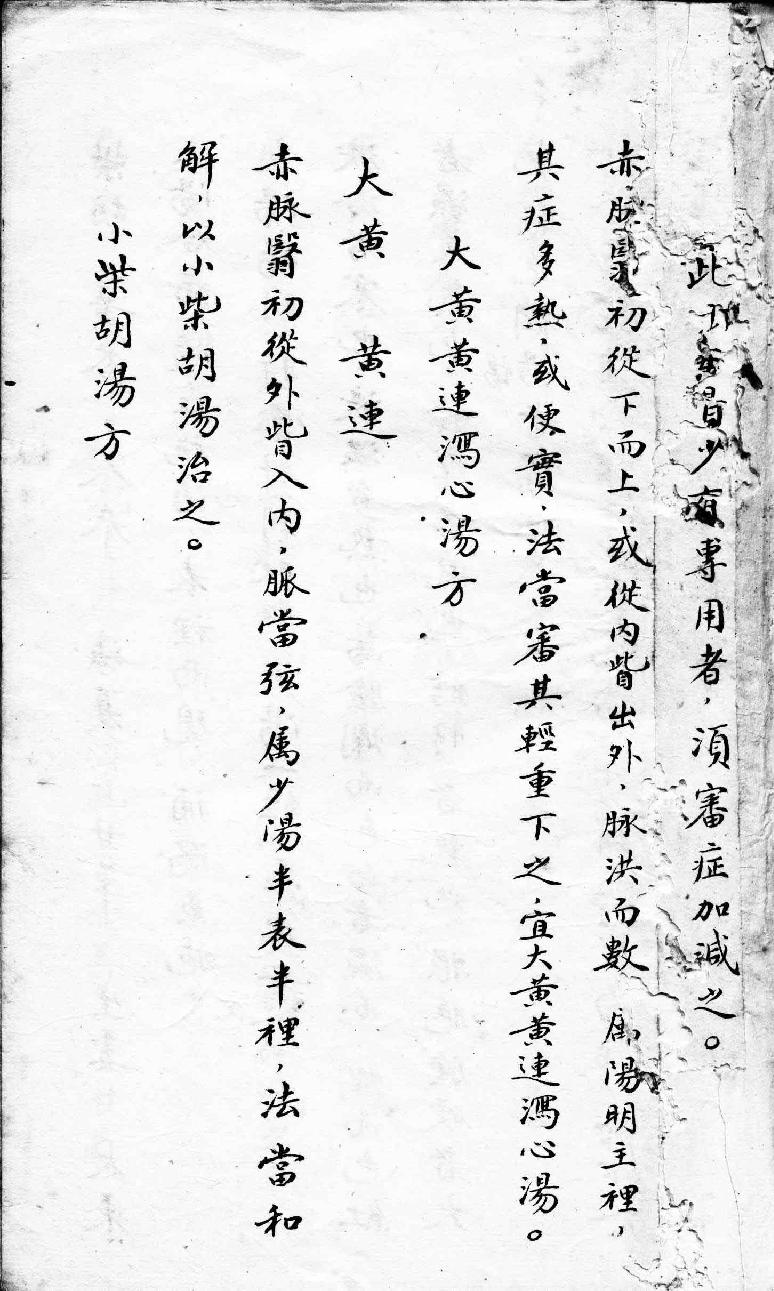 此 昔少有專用者，須審症加減之。
赤脉翳初從下而上，或從内眥出外，脉洪而數 属陽明主裡，
其症多熱，或便實，法當審其輕重下之，宜大黄黄連瀉心湯。
大黄黄連瀉心湯方
大黄 黄連
赤脉翳初從外眥入内，脈當弦，属少湯半表半裡，法當和
解，以小柴胡湯治之。
小柴胡湯方